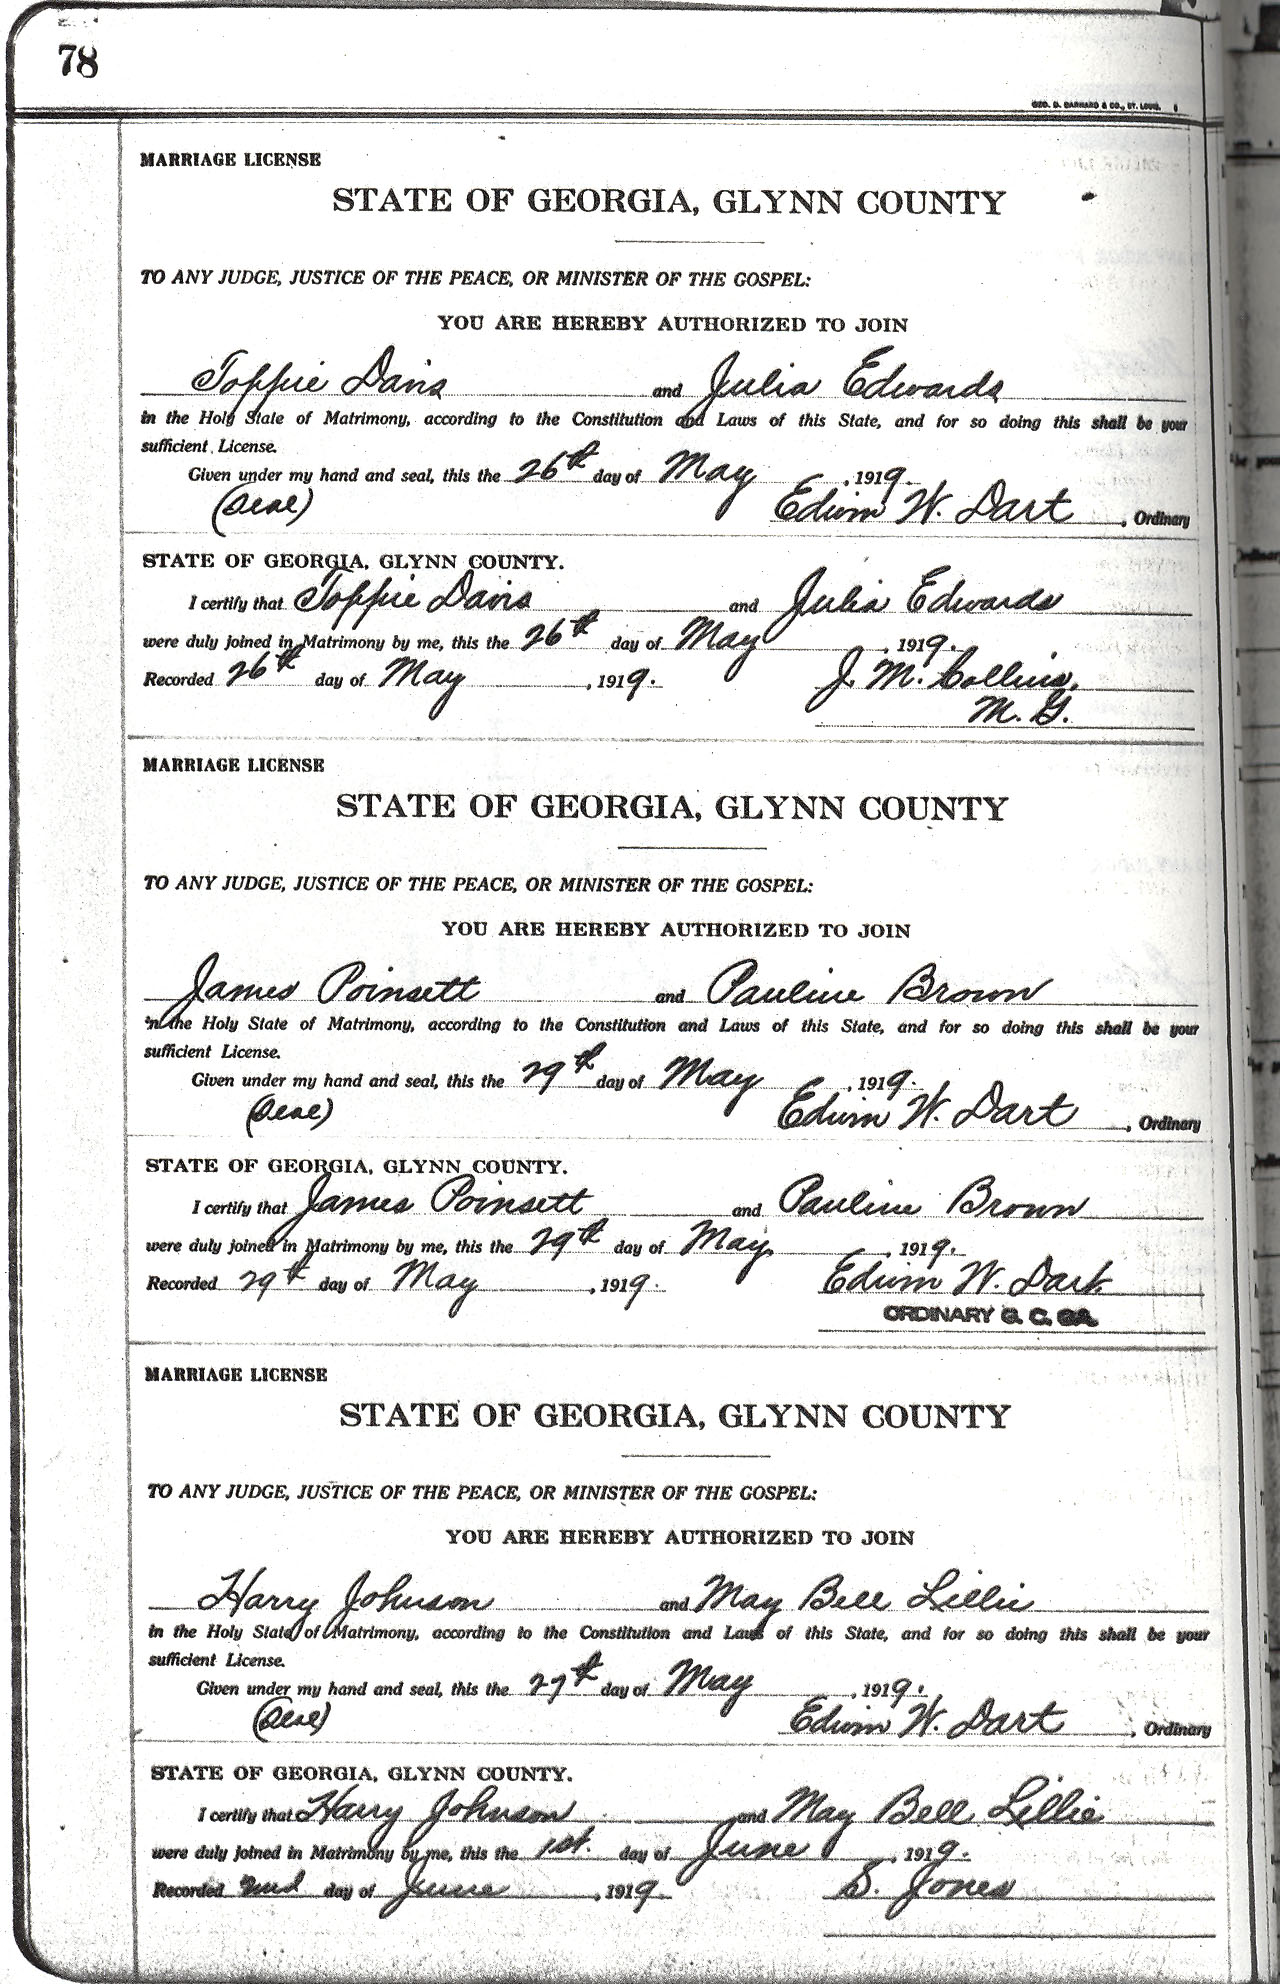 78
GEO. D. BARNARD & CO., ST. LOUIS.
MARRIAGE LICENSE
STATE OF GEORGIA, GLYNN COUNTY
TO ANY JUDGE, JUSTICE OF THE PEACE, OR MINISTER OF THE GOSPEL:
YOU ARE HEREBY AUTHORIZED TO JOIN
Toppie Davis and Julia Edwards
in the Holy State of Matrimony, according to the Constitution and Laws of this State, and for so doing this shall be your
sufficient License.
Given under my hand and seal, this the 26th day of May, 1919.
(Seal) Edwin W. Dart, Ordinary
STATE OF GEORGIA, GLYNN COUNTY.
I certify that Toppie Davis and Julia Edwards
were duly joined in Matrimony by me, this the 26th day of May, 1919.
Recorded 26th day of May, 1919. J. M. Collins,
M. G.
MARRIAGE LICENSE
STATE OF GEORGIA, GLYNN COUNTY
TO ANY JUDGE, JUSTICE OF THE PEACE, OR MINISTER OF THE GOSPEL:
YOU ARE HEREBY AUTHORIZED TO JOIN
James Poinsett and Pauline Brown
in the Holy State of Matrimony, according to the Constitution and Laws of this State, and for so doing this shall be your
sufficient License.
Given under my hand and seal, this the 29th day of May, 1919.
(Seal) Edwin W. Dart, Ordinary
STATE OF GEORGIA, GLYNN COUNTY.
I certify that James Poinsett and Pauline Brown
were duly joined in Matrimony by me, this the 29th day of May, 1919.
Recorded 29th day of May, 1919. Edwin W. Dart
ORDINARY G. C. GA.
MARRIAGE LICENSE
STATE OF GEORGIA, GLYNN COUNTY
TO ANY JUDGE, JUSTICE OF THE PEACE, OR MINISTER OF THE GOSPEL:
YOU ARE HEREBY AUTHORIZED TO JOIN
Harry Johnson and May Bell Lillie
in the Holy State of Matrimony, according to the Constitution and Laws of this State, and for so doing this shall be your
sufficient License.
Given under my hand and seal, this the 27th day of May, 1919.
(Seal) Edwin W. Dart, Ordinary
STATE OF GEORGIA, GLYNN COUNTY.
I certify that Harry Johnson and May Bell Lillie
were duly joined in Matrimony by me, this the 1st. day of June, 1919.
Recorded 2nd day of June, 1919 S. Jones